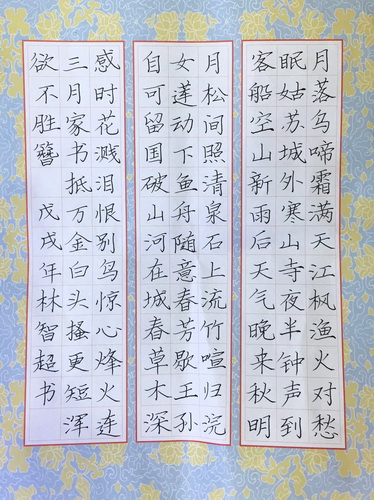 月落乌啼霜满天江枫渔火对愁
眠姑苏城外寒山寺夜半钟声到
客船空山新雨后天气晚来秋明
月松间照清泉石上流竹喧归浣
女莲动下鱼舟随意春芳歇王孙
自可留国破山河在城春草木深
感时花溅泪恨别鸟惊心烽火连
三月家书抵万金白头搔更短浑
欲不胜簪 戊戌年林智超书